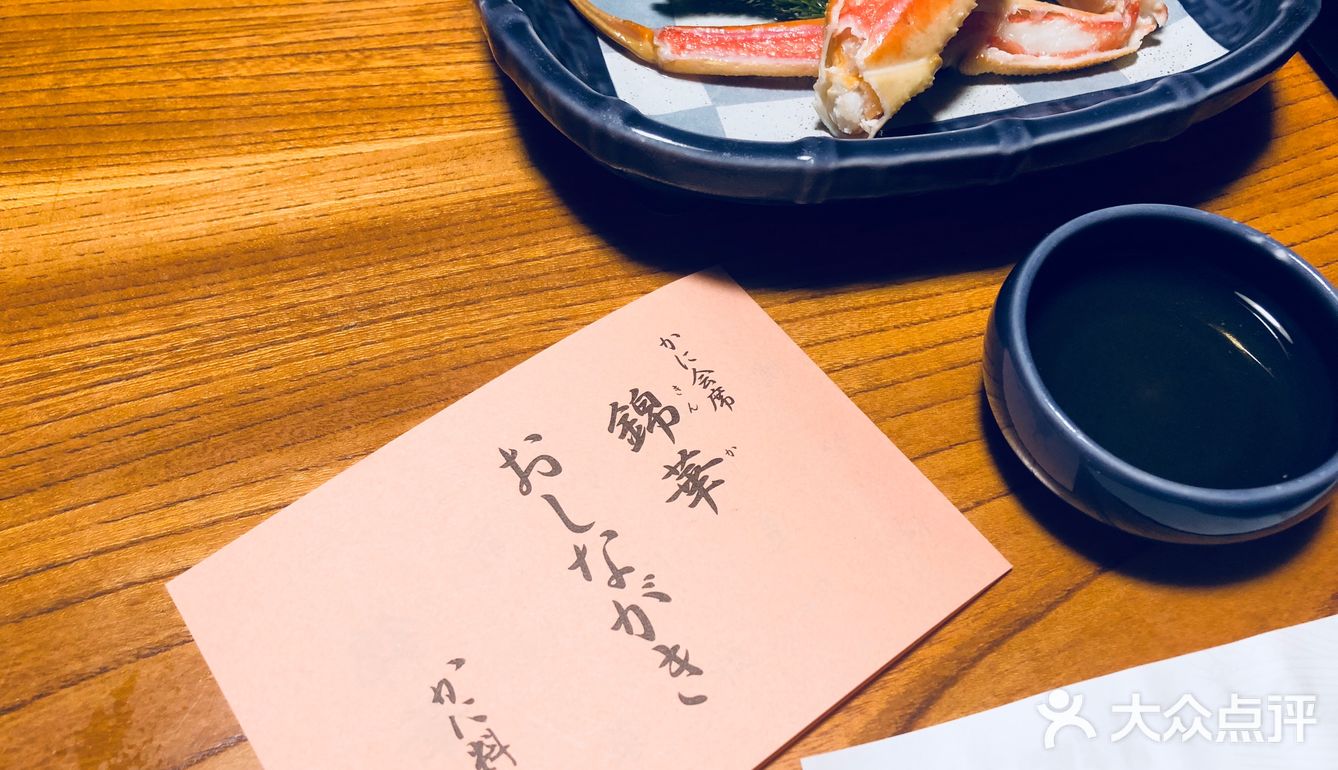 かに会席
錦華
きんか
おしながき
かに料
大众点评